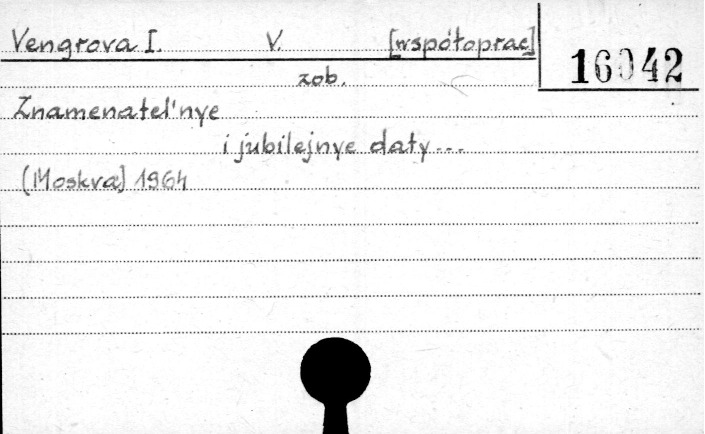 Vengrova I. V. [współoprac]
16042
zob.
Znamenatel'nye
i jubilejnye daty...
[Moskva] 1964